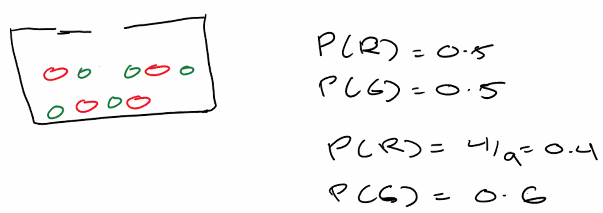 P(R) = 0.5
P(G) = 0.5
P(R) = 4/9 = 0.4
P(G) = 0.6